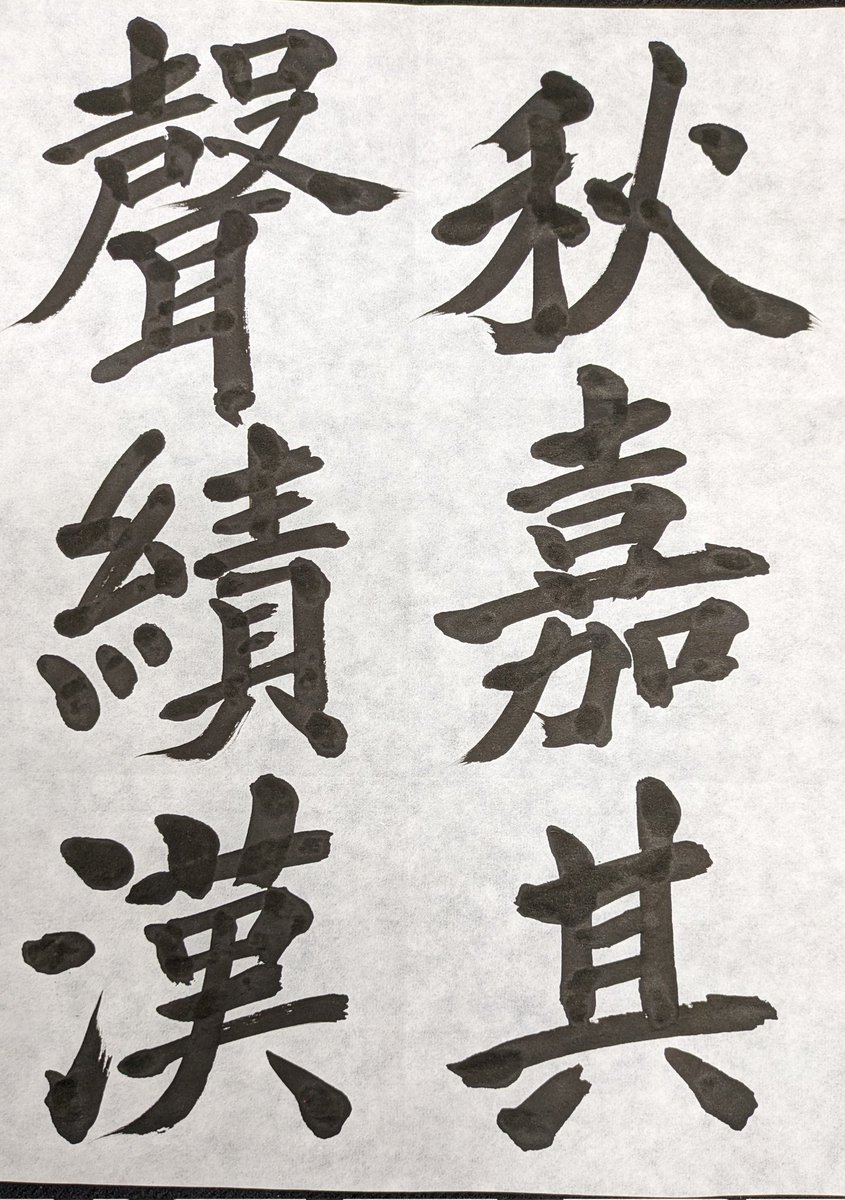 秋嘉其
聲績漢